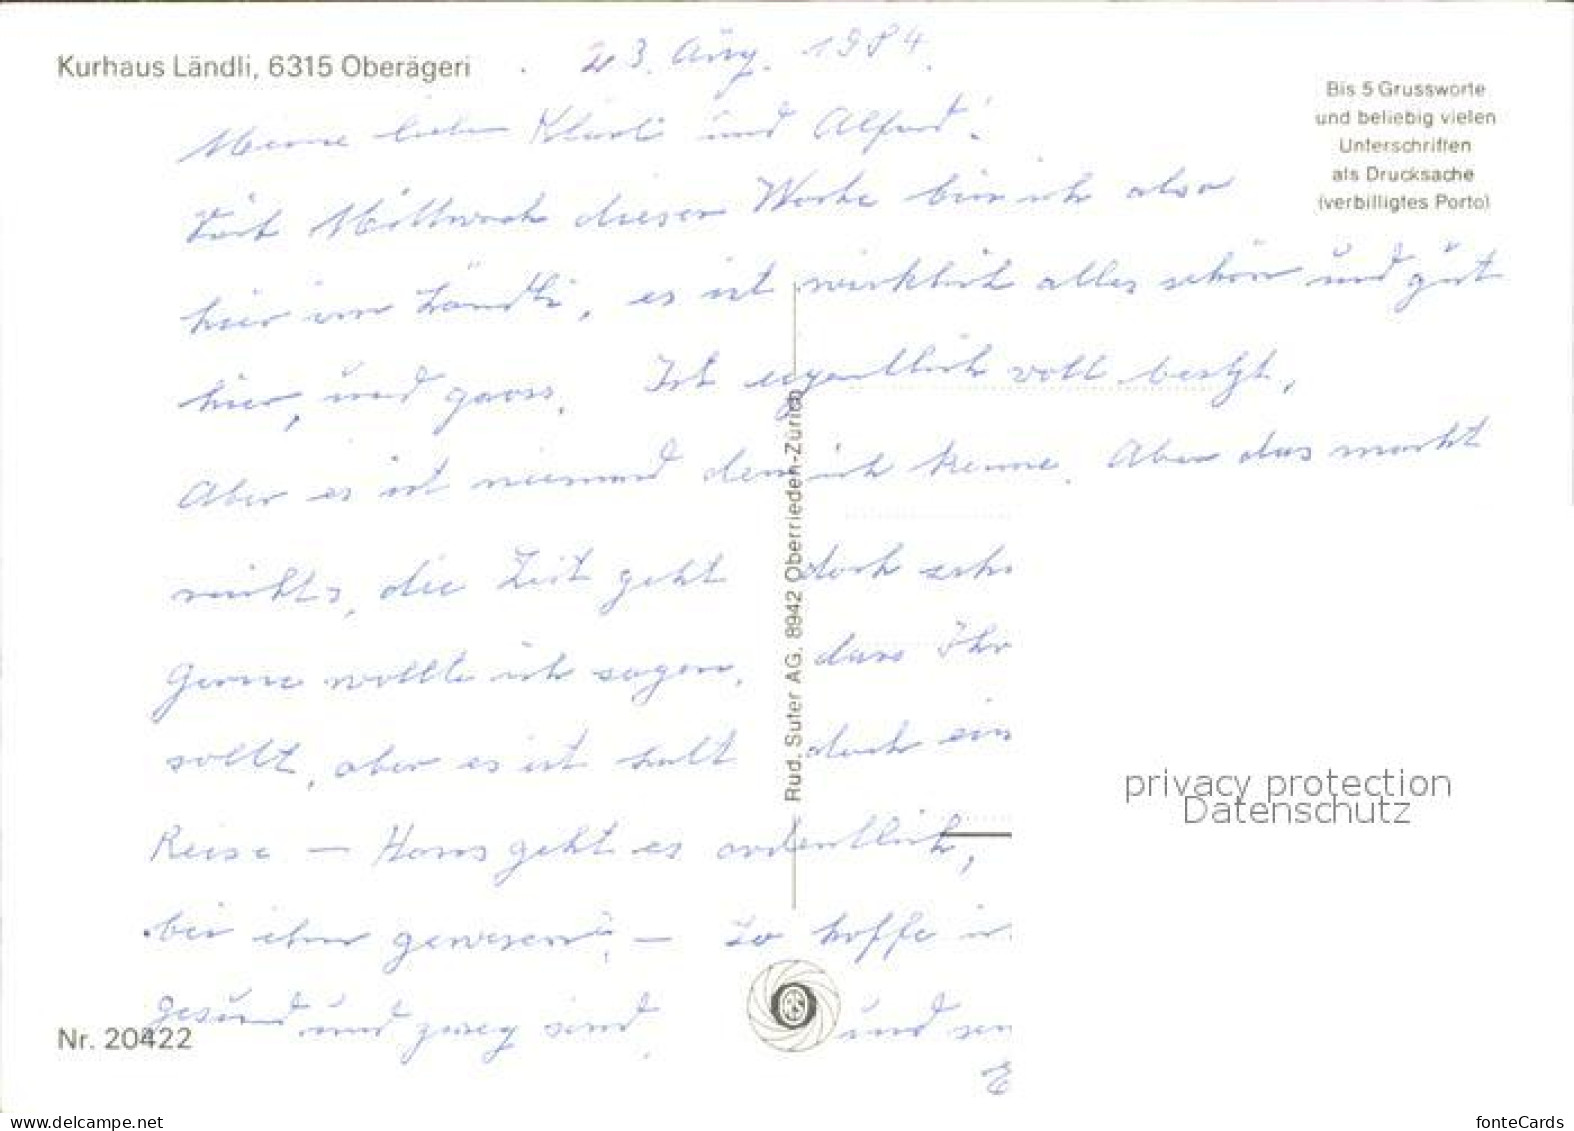 Kurhaus Ländli, 6315 Oberägeri
23. Aug. 1984.
Bis 5 Grussworte
und beliebig vielen
Unterschriften
als Drucksache
(verbilligtes Porto)
Meine lieben und Alfred!
Seit Mittwoch dieser Woche bin ich also
hier im Ländli, es ist wirklich alles schön und gut
hier, und gross. Ist eigentlich voll besetzt.
Aber es ist niemand den ich kenne. Aber das macht
nichts, die Zeit geht doch
Gerne wollte ich sagen, dass Ihr
sollt, aber es ist halt doch ein
Reise – Hans geht es ordentlich,
bei ihm gewesen – So hoffe
gesund und zweg sind. und
Rud. Suter AG, 8942 Oberrieden-Zürich
Nr. 20422
privacy protection
Datenschutz
www.delcampe.net
fonteCards